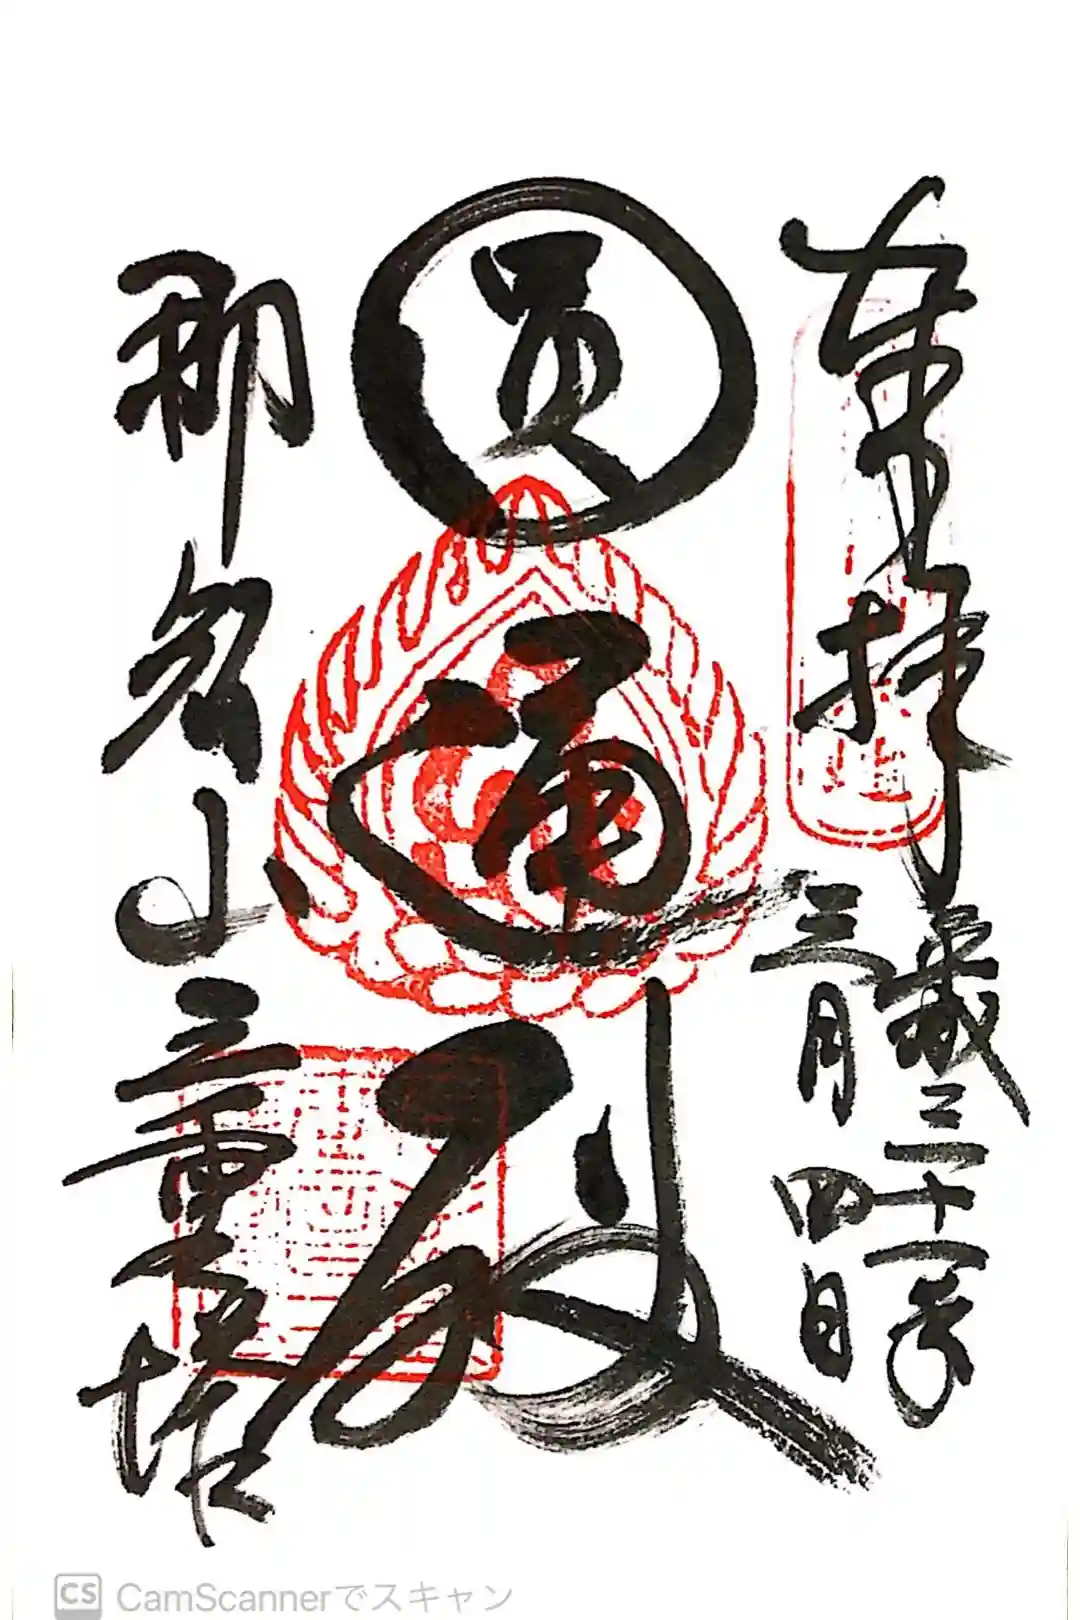 奉拝
平成三十一年
三月四日
圓通殿
那智山三重塔
CS CamScannerでスキャン